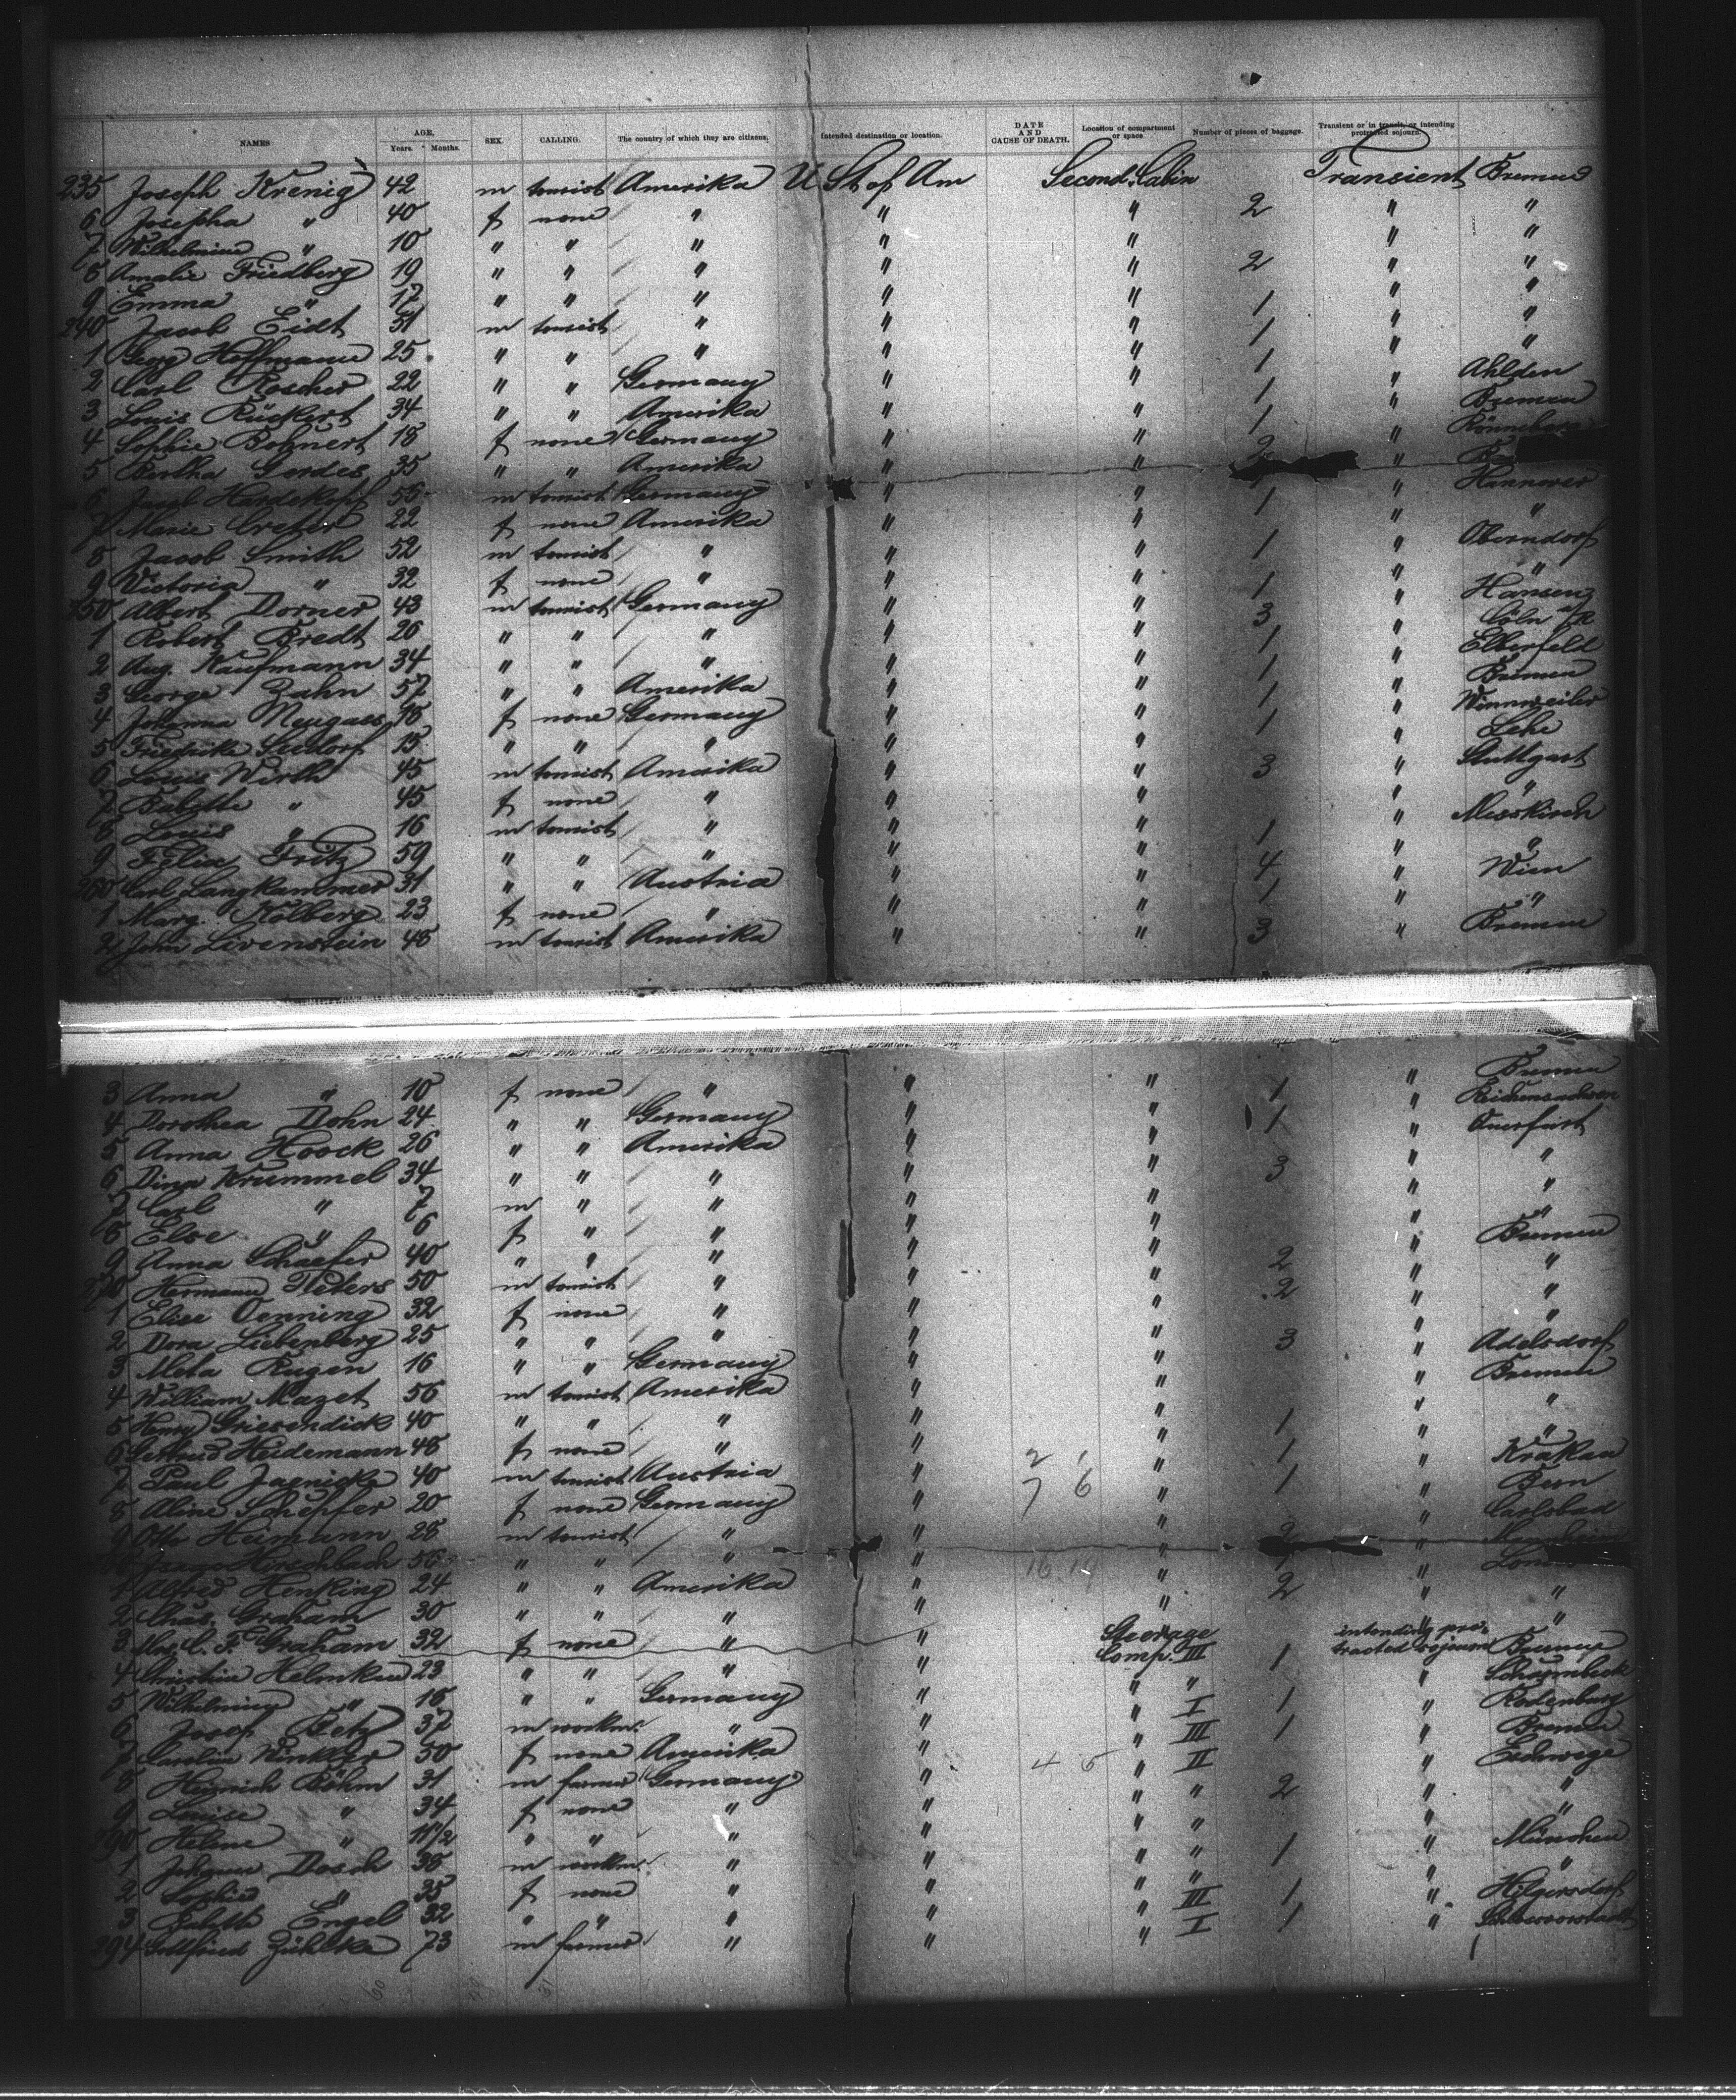 NAMES AGE. Years. Months. SEX. CALLING. The country of which they are citizens. Intended destination or location. DATE AND CAUSE OF DEATH. Location of compartment or space Number of pieces of baggage. Transient or in transit, or intending protracted sojourn.
235 Joseph Krenig 42 m tourist Amerika U St of Am Second Cabin Transient Bremen
6 Josepha " 40 f none " " " 2 " "
7 Wilhelmine " 10 " " " " " " "
8 Amalie Friedberg 19 " " " " " 2 " "
9 Emma " 17 " " " " " 1 " "
240 Jacob Eidt 51 m tourist " " " 1 " "
1 Georg Hoffmann 25 " " " " " 1 "
2 Carl Roscher 22 " " Germany " " 1 " Ahlden
3 Louis Rückert 34 " " Amerika " " 1 " Bremen
4 Sophie Bohnert 18 f none Germany " " 2 "
5 Bertha Gerdes 35 " " Amerika " " "
6 Jacob Hardekopf 56 m tourist Germany " " 1 " Hannover
7 Marie 22 f none Amerika " " " "
8 Jacob Smith 52 m tourist " " " 1 " Oberndorf
9 Victoria " 32 f none " " " " "
250 Albert Dorner 43 m tourist Germany " " 3 "
1 Robert Bredt 26 " " " " " 1 " Cöln
2 Aug. Kaufmann 34 " " " " " 1 " Elberfeld
3 George Zahn 57 " " Amerika " " 1 " Bremen
4 Johanna 18 f none Germany " " 1 " Winnweiler
5 Friedrike Seedorf 15 " " " " " " Lehe
6 Louis Wirth 45 m tourist Amerika " " 3 " Stuttgart
7 Babette " 45 f none " " " " "
8 Louis " 16 m tourist " " " 1 " Messkirch
9 Felix Fritz 59 " " " " " 4 " "
260 Carl Langkammer 31 " " Austria " " 1 " Wien
1 Marg. Kolberg 23 f none " " " " "
2 John Livenstein 48 m tourist Amerika " " 3 " Bremen
3 Anna " 10 f none " " " " Bremen
4 Dorothea Dohn 24 " " Germany " " 1 "
5 Anna Hoock 26 " " Amerika " " 1 " Querfurt
6 Dina Krummel 34 " " " " " 3 " "
7 Carl " 7 m " " " " " "
8 Else " 6 f " " " " " "
9 Anna Schaefer 40 " " " " " 2 " Bremen
270 Hermann Peters 50 m tourist " " " 2 " "
1 Elise Oenning 32 f none " " " " "
2 Dora Liebenberg 25 " " " " " 3 " "
3 Meta Rugen 16 " " Germany " " " Adelsdorf
4 William Mazet 56 m tourist Amerika " " " Bremen
5 Henry Griesendick 40 " " " " " 1 " "
6 Heidemann 48 f none " " 2 1 " 1 " "
7 Paul Jaenicke 40 m tourist Austria " 7 6 " 1 " Krakau
8 Aline Schepfer 20 f none Germany " " " Bern
9 Otto Heimann 28 m tourist " " " 2 " Carlsbad
Hirschbach 56 " " " " 16.19 " "
1 Alfred Henking 24 " " Amerika " " 2 "
2 Chas. Graham 30 " " " " " " "
3 Mrs. C. F. Graham 32 f none " " " " "
4 Christine Helmken 23 " " " " Steerage Comp. III 1 intending protracted sojourn Bremen
5 Wilhelmine " 16 " " Germany " " " "
6 Josef Betz 37 m workm. " " " I 1 "
7 Caroline Winkler 50 f none Amerika " " III 1 " Bremen
8 Heinrich Böhm 31 m farmer Germany " 4 5 " II 2 " Eschwege
9 Louise " 34 f none " " " " " "
290 Helene " 11/2 " " " " " " " "
1 Johann Dosch 38 m workm. " " " " 1 " München
2 Sophie " 35 f none " " " " " "
3 Babette Engel 32 " " " " " III 1 "
294 Gottfried Zühlke 73 m farmer " " " I 1 "